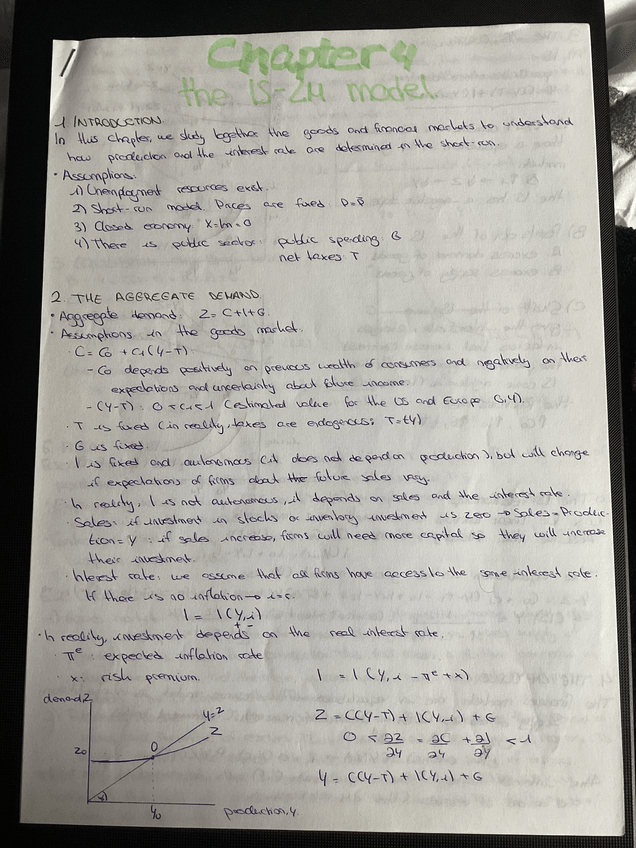 Chapter 4
the IS-LM model.
1 INTRODUCTION.
In this chapter, we study together the goods and financial markets to understand
how production and the interest rate are determined in the short-run.
• Assumptions:
1) Unemployment resources exist.
2) Short-run model. Prices are fixed P=P̄
3) Closed economy X-Im=0
4) There is public sector: public spending G
net taxes T
2. THE AGGREGATE DEMAND.
• Aggregate demand: Z=C+I+G.
• Assumptions in the goods market.
· C = C0 + C1(Y-T).
- C0 depends positively on previous wealth of consumers and negatively on their
expectations and uncertainty about future income.
- (Y-T): 0<C1<1 (estimated value for the US and Europe 0,4).
· T is fixed (in reality, taxes are endogenous: T=tY)
· G is fixed.
· I is fixed and autonomous (it does not depend on production), but will change
if expectations of firms about the future sales vary.
· In reality, I is not autonomous, it depends on sales and the interest rate.
· Sales: if investment in stocks or inventory investment is zero → Sales = Produc-
tion = Y : if sales increase, firms will need more capital so they will increase
their investment.
· Interest rate: we assume that all firms have access to the same interest rate.
If there is no inflation → i=r.
I = I(Y,i)
+ -
• In reality, investment depends on the real interest rate.
· πe: expected inflation rate
· x: risk premium. I = I(Y, i - πe + x)
demand, Z
Y=Z
Z
Z0
O
Y0
production, Y
Z = C(Y-T) + I(Y,i) + G
0 < ∂Z/∂Y = ∂C/∂Y + ∂I/∂Y < 1
Y = C(Y-T) + I(Y,i) + G